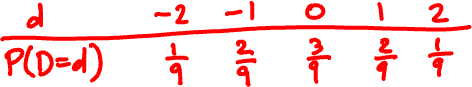 d -2 -1 0 1 2
P(D=d) 1/9 2/9 3/9 2/9 1/9